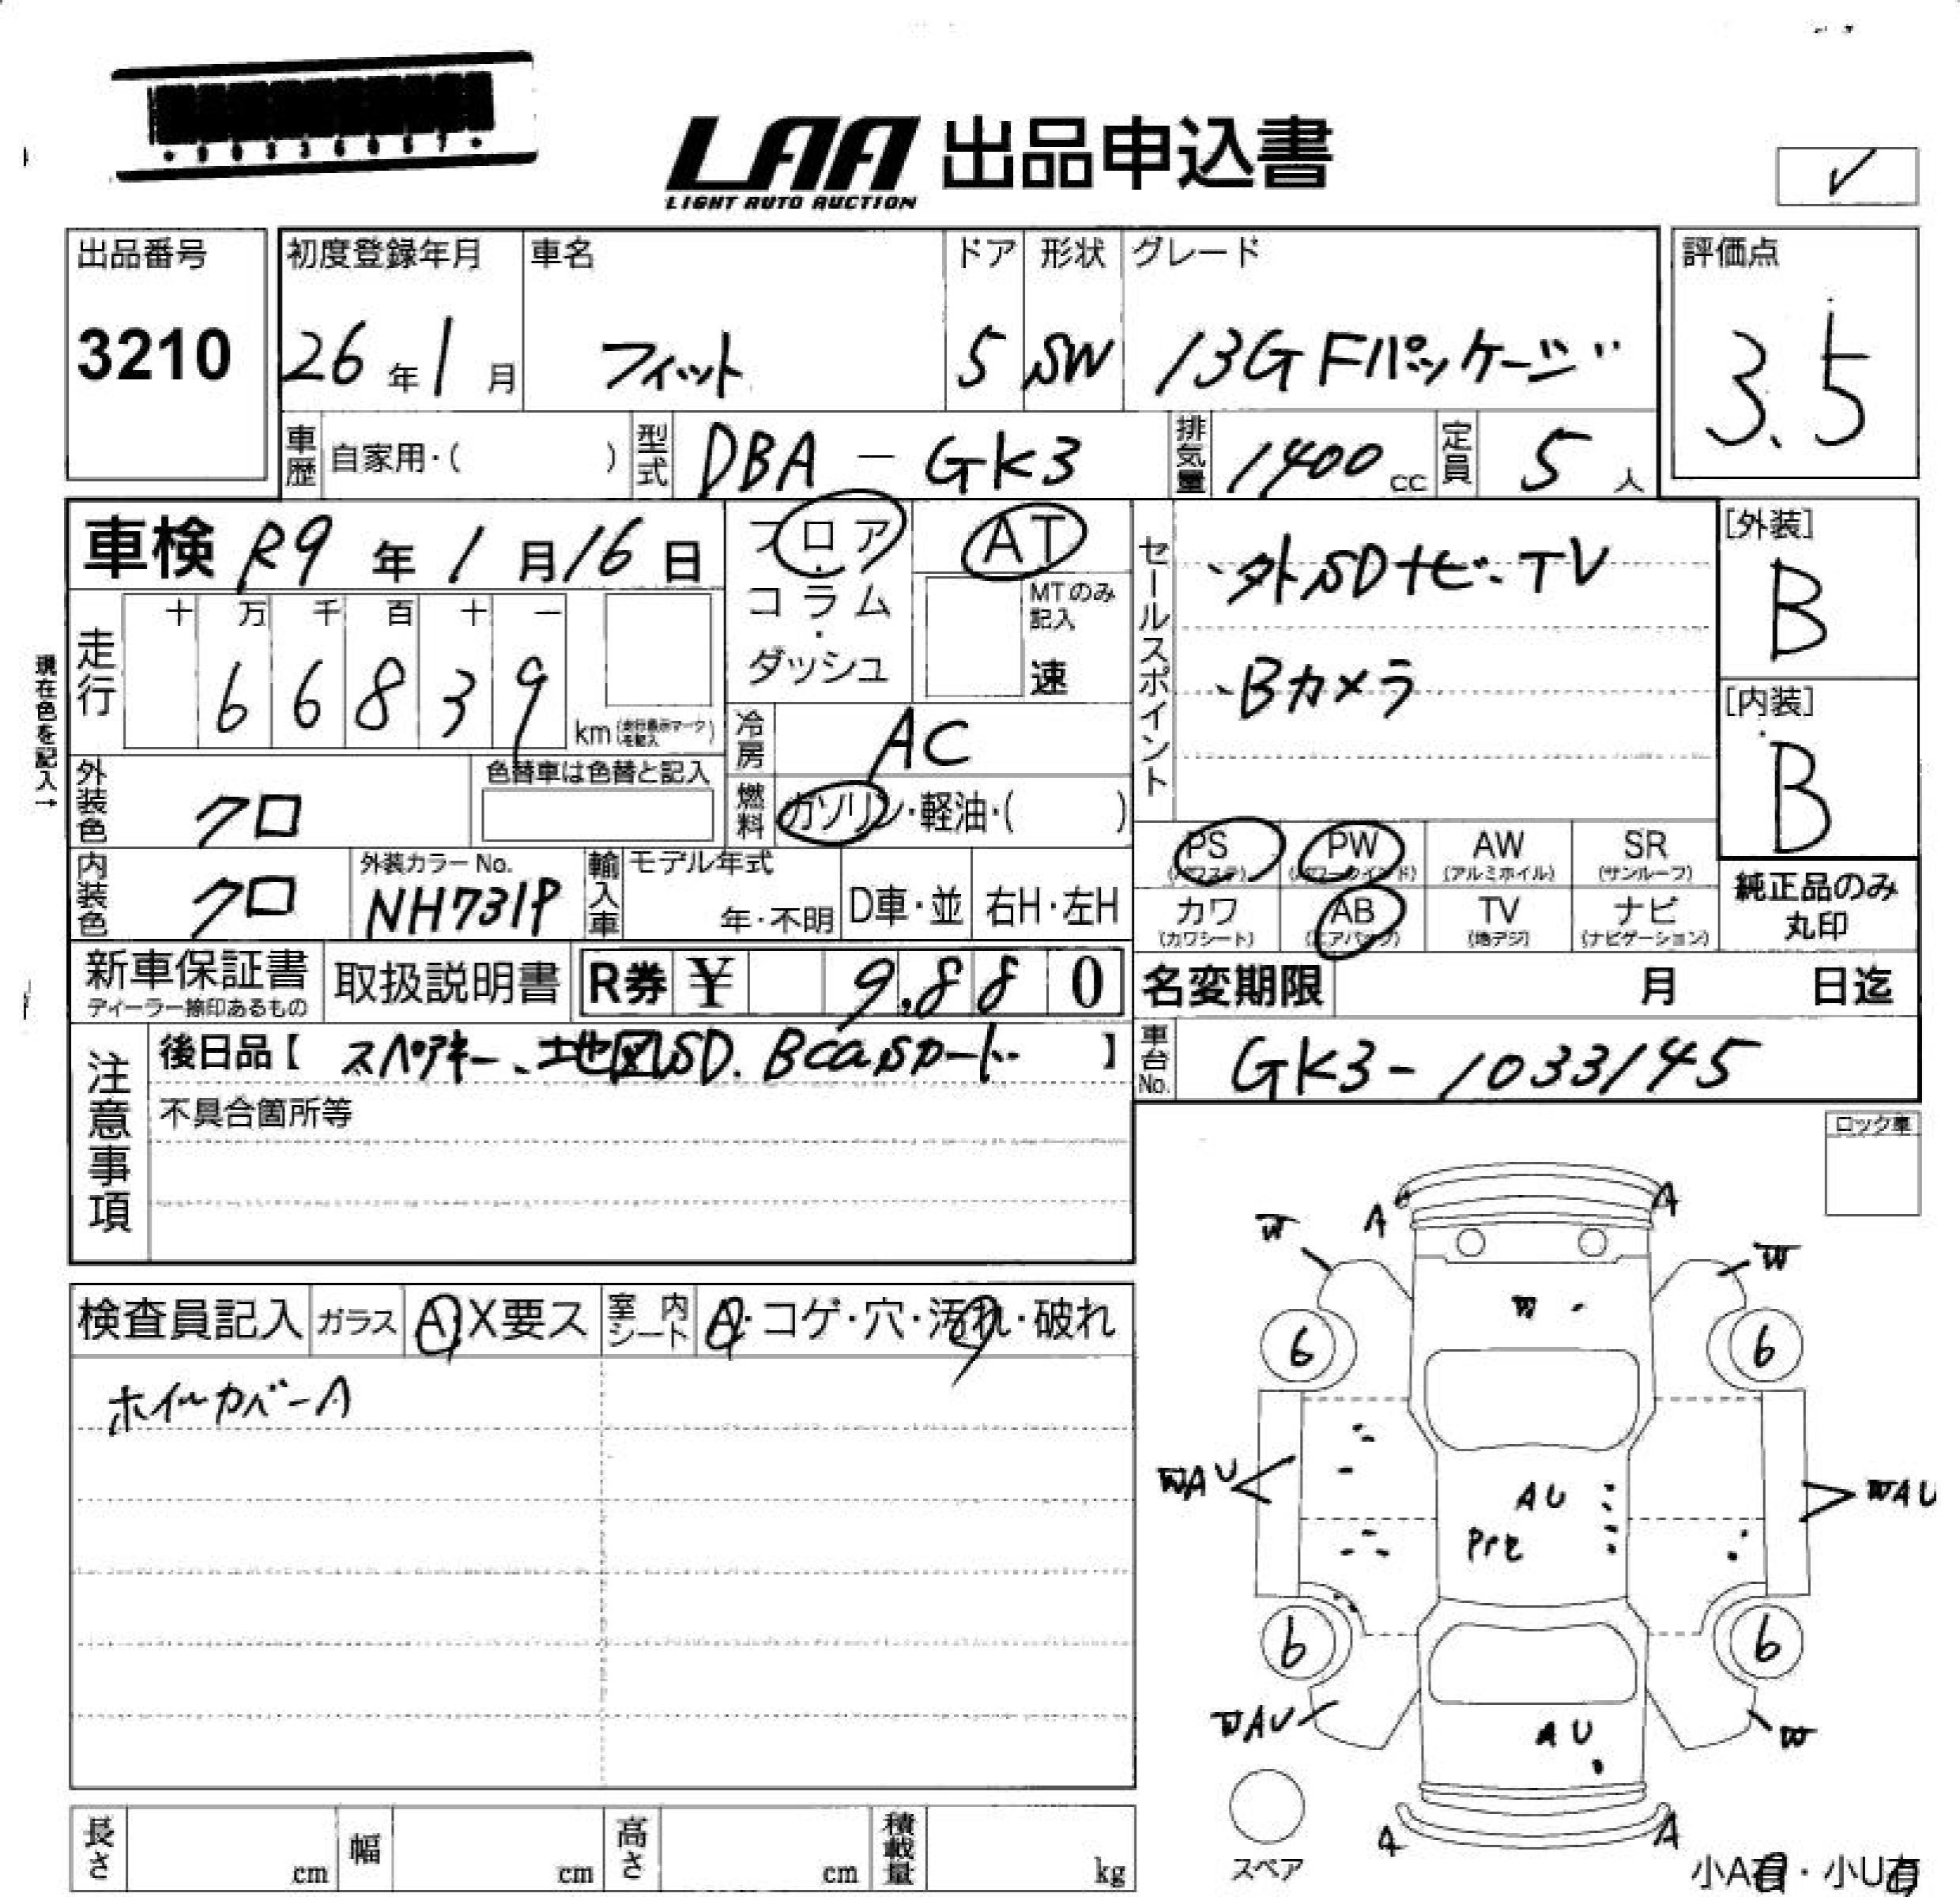 LAA 出品申込書
LIGHT AUTO AUCTION
✓
出品番号
3210
初度登録年月
26年1月
車名
フィット
ドア
5
形状
SW
グレード
13G Fパッケージ
評価点
3.5
車歴 自家用・( )
型式 DBA - GK3
排気量 1400 cc
定員 5 人
車検 R9年1月16日
フロア・コラム・ダッシュ
AT
MTのみ記入
速
セールスポイント
、外SDナビ、TV
、Bカメラ
[外装]
B
[内装]
B
現在色を記入→
走行
十 万 千 百 十 一
6 6 8 3 9
km(走行表示マークを記入)
冷房 AC
燃料 ガソリン・軽油・( )
外装色 クロ
色替車は色替と記入
PS (パワステ)
PW (パワーウインド)
AW (アルミホイル)
SR (サンルーフ)
カワ (カワシート)
AB (エアバック)
TV (地デジ)
ナビ (ナビゲーション)
純正品のみ丸印
内装色 クロ
外装カラーNo.
NH731P
輸入車
モデル年式
年・不明
D車・並
右H・左H
新車保証書
ディーラー捺印あるもの
取扱説明書
R券 ¥ 9,880
名変期限 月 日迄
注意事項
後日品【 スペアキー、地図SD. Bcasカード 】
車台No. GK3-1033145
不具合箇所等
ロック車
検査員記入
ガラス A・X要ス
室内シート A・コゲ・穴・汚れ・破れ
ホイールカバーA
A
A
W
W
W
6
6
WAU
WAU
AU
6
6
WAU
W
AU
A
A
スペア
小A有・小U有
長さ cm
幅 cm
高さ cm
積載量 kg